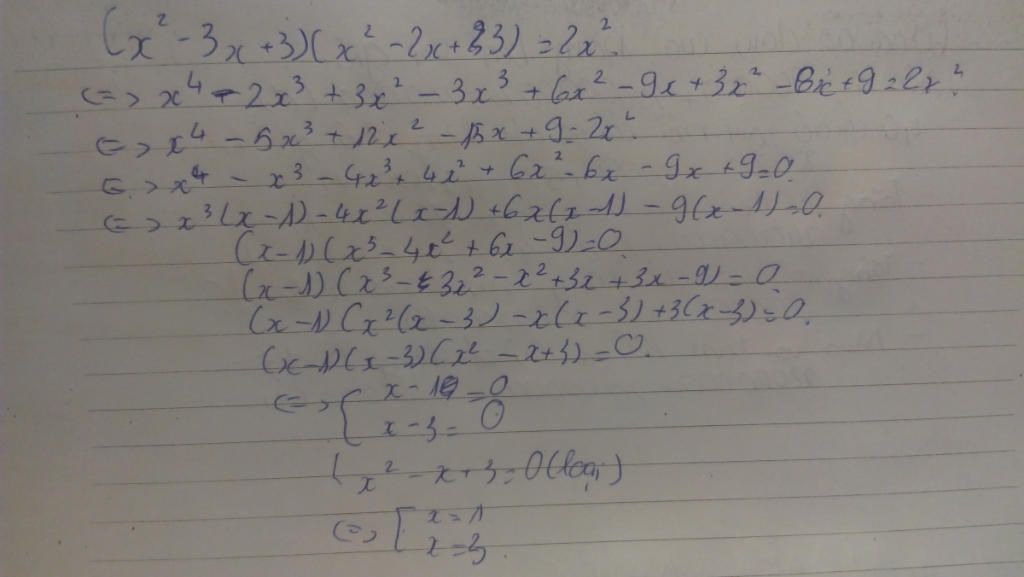 (x² - 3x + 3)(x² - 2x + 3) = 2x².
<=> x⁴ - 2x³ + 3x² - 3x³ + 6x² - 9x + 3x² - 6x + 9 = 2x².
<=> x⁴ - 5x³ + 12x² - 15x + 9 = 2x².
<=> x⁴ - x³ - 4x³ + 4x² + 6x² - 6x - 9x + 9 = 0.
<=> x³(x - 1) - 4x²(x - 1) + 6x(x - 1) - 9(x - 1) = 0.
(x - 1)(x³ - 4x² + 6x - 9) = 0.
(x - 1)(x³ - 3x² - x² + 3x + 3x - 9) = 0.
(x - 1)(x²(x - 3) - x(x - 3) + 3(x - 3) = 0.
(x - 1)(x - 3)(x² - x + 3) = 0.
<=> [ x - 1 = 0
x - 3 = 0
x² - x + 3 = 0 (loại)
<=> [ x = 1
x = 3